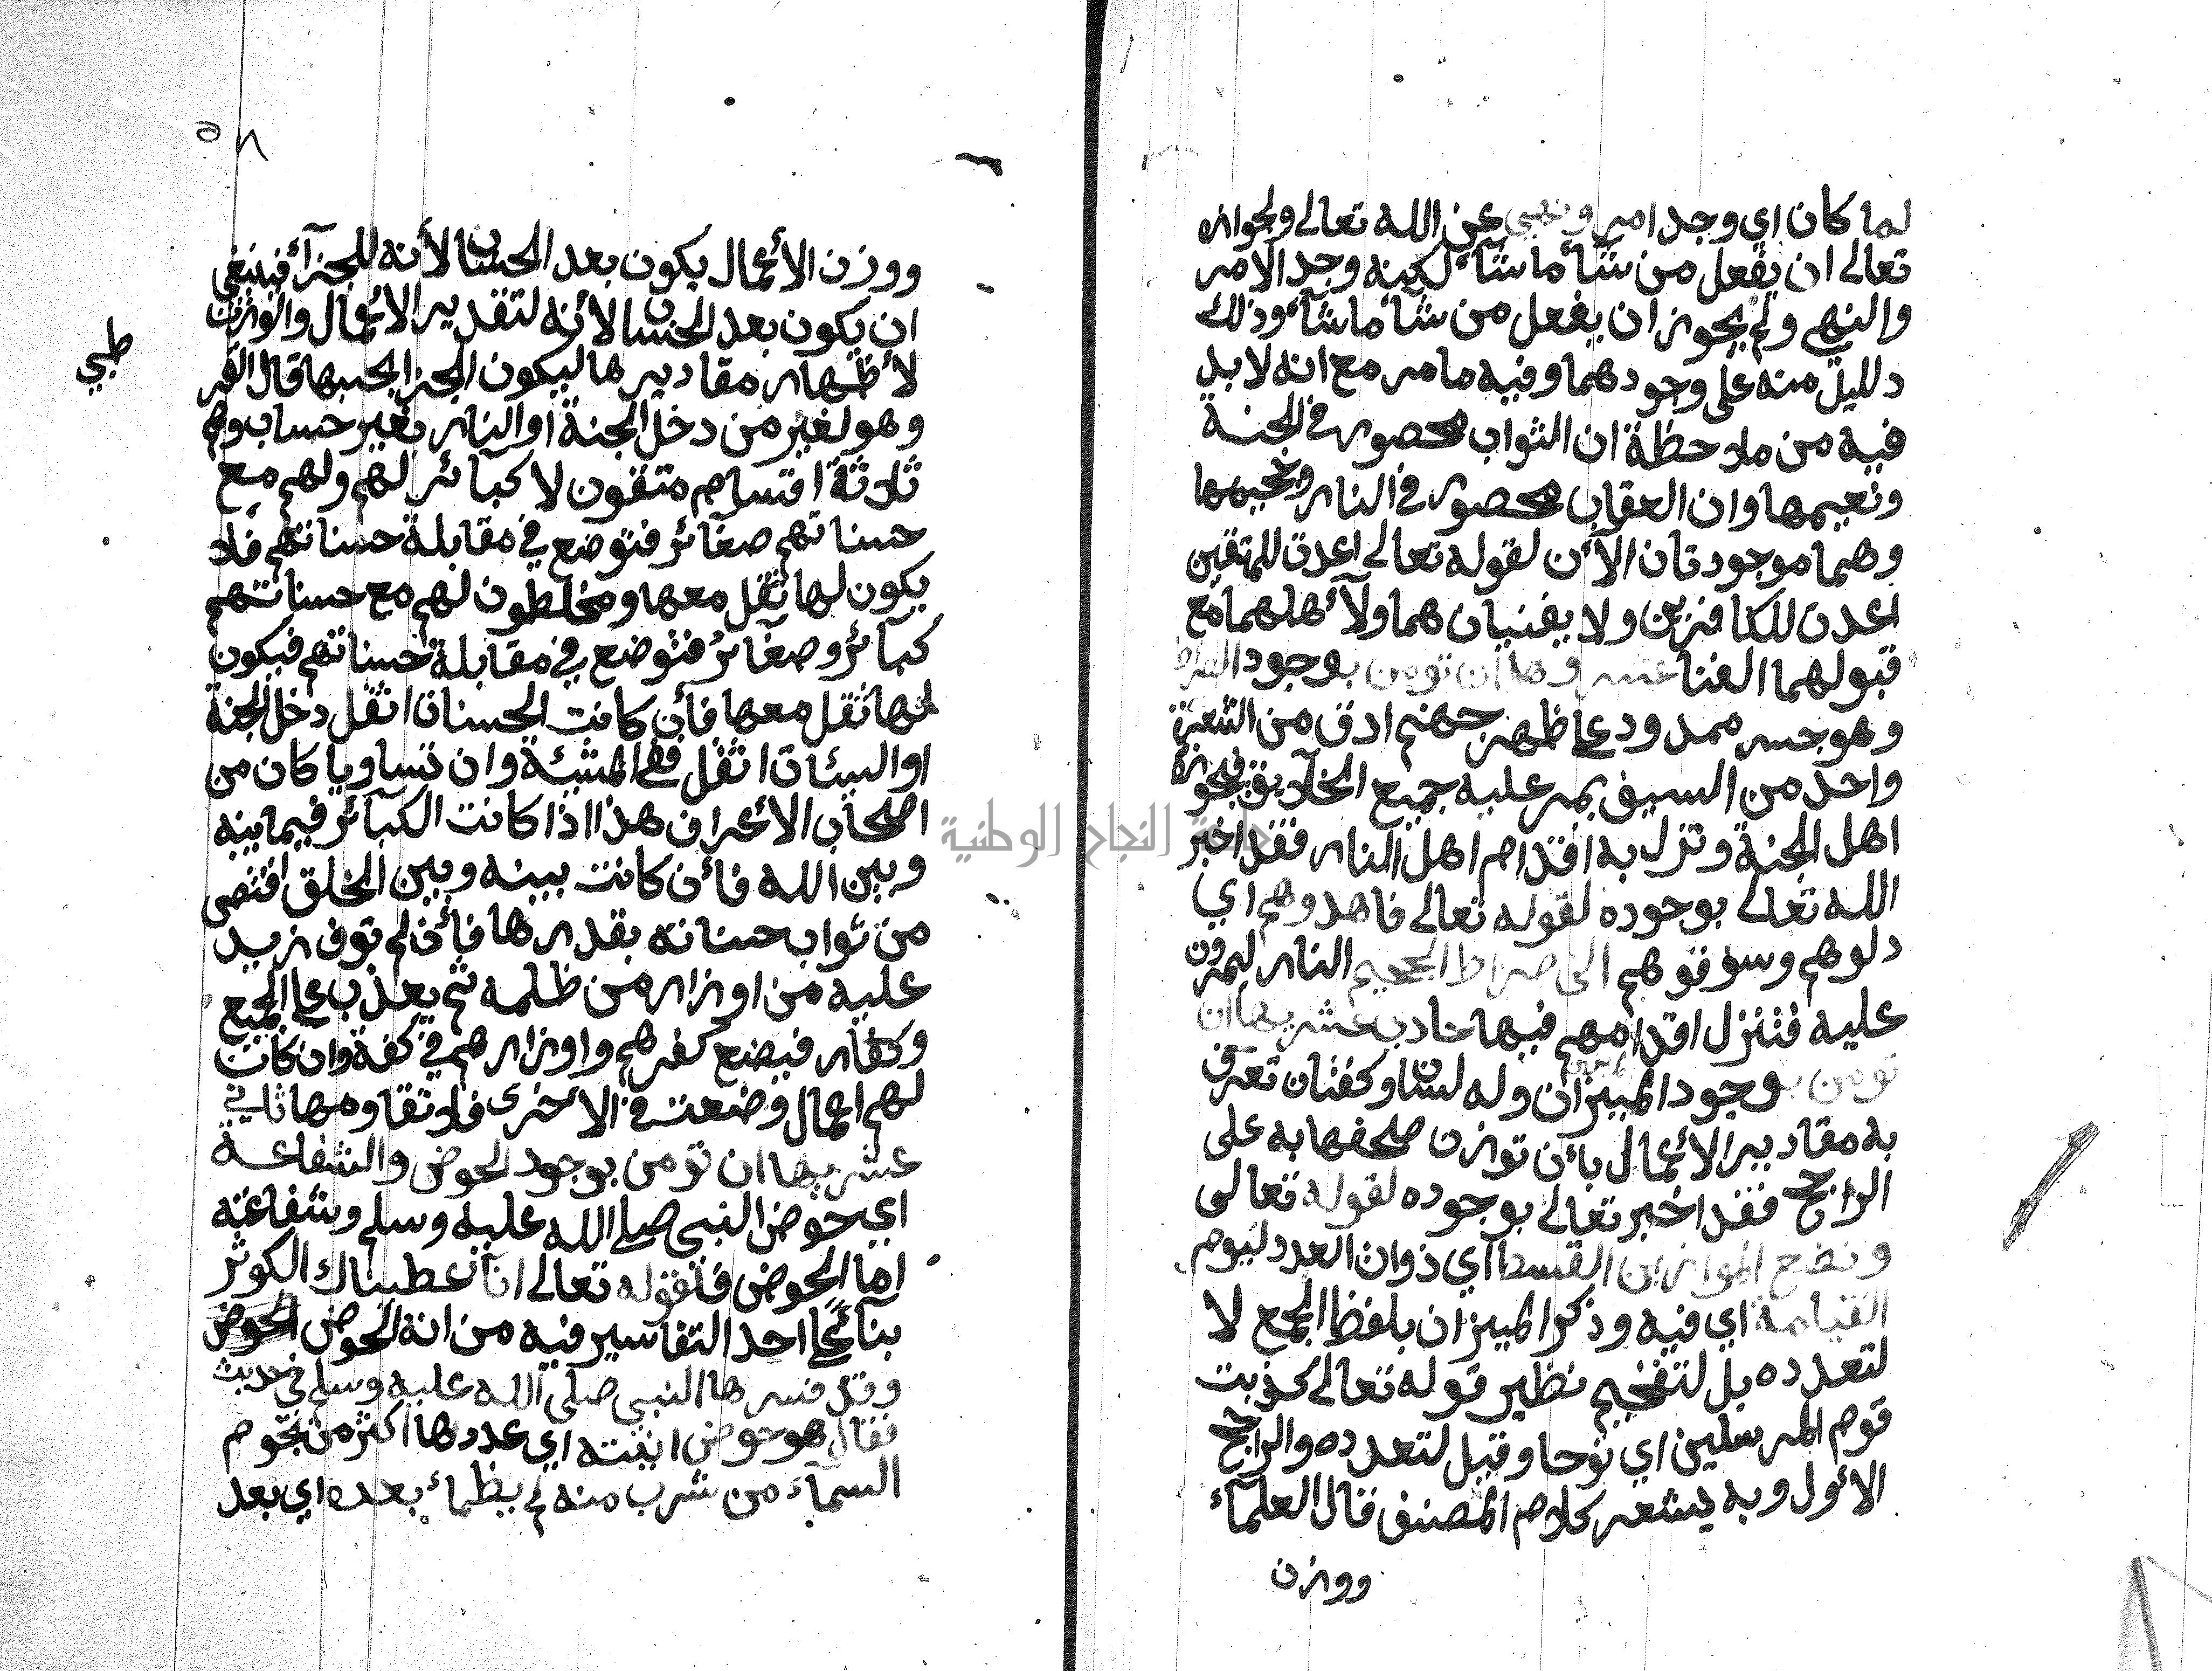 لما كان اي وجد امر ونهي عن الله تعالى ولجوازه
تعالى ان يفعل من شأ ما شأ لكنه وجد الامر
والنهي ولم يجوز ان يفعل من شأ ما شأ وذلك
دليل منه على وجودهما وفيه ما مر مع انه لا بد
فيه من ملاحظة ان الثواب محصور في الجنة
ونعيمها وان العقاب محصور في النار وجحيمها
وهما موجودتان الأن لقوله تعالى اعدت للمتقين
اعدت للكافرين ولا يفنيان هما ولا أهلهما مع
قبولهما الفنا عشروها ان تومن بوجود الصراط
وهو جسر ممدود على ظهر جهنم ادق من الشعرة
واحد من السيف يمر عليه جميع الخلايق فيجوزه
اهل الجنة وتزل به اقدام اهل النار فقد اخبر
الله تعالى بوجوده لقوله تعالى فاهدوهم اي
دلوهم وسوقوهم الى صراط الجحيم النار ليمرون
عليه فتنزل اقدامهم فيها حادي عشريها ان
تومن بوجود الميزان وله لسان وكفتان تعرف
به مقادير الأعمال بأن توزن صحفها به على
الراجح فقد اخبر تعالى بوجوده لقوله تعالى
ونضع الموازين القسط اي ذوات العدد ليوم
القيامة اي فيه وذكر الميزان بلفظ الجمع لا
لتعدده بل لتفخيم نظير قوله تعالى كذبت
قوم المرسلين اي نوحا وقيل لتعدده والراجح
الأول وبه يشعر كلام المصنف قال العلمآء
ووزن
جامعة النجاح الوطنية
ووزن الأعمال يكون بعد الحساب لأنه للجزآء فينبغي
ان يكون بعد الحساب لأنه لتقدير الاعمال والوزن
لأظهار مقاديرها ليكون الجزا بحسبها قال
وهو لغير من دخل الجنة او النار بغير حساب وهم
ثلاثة اقسام متقون لا كبائر لهم ولهم مع
حسناتهم صغائر فتوضع في مقابلة حسناتهم فلا
يكون لها ثقل معها ومخلطون لهم مع حسناتهم
كبآئر وصغآئر فتوضع في مقابلة حسناتهم فيكون
لها ثقل معها فأن كانت الحسنات اثقل دخل الجنة
او السيئات اثقل ففي المشيئة وان تساويا كان من
اصحاب الأعراف هذا اذا كانت الكبآئر فيما بينه
وبين الله فأن كانت بينه وبين الخلق اقتص
من ثواب حسناته بقدرها فأن لم توف زيد
عليه من اوزار من ظلمه ثم يعذب على الجميع
وكفار فيضع كفرهم واوزارهم في كفة وان كانت
لهم اعمال وضعت في الأخرى فلا تقاومها ثاني
عشريها ان تومن بوجود الحوض والشفاعة
اي حوض النبي صلى الله عليه وسلم وشفاعته
اما الحوض فلقوله تعالى انآ اعطيناك الكوثر
بنآء على احد التفاسير فيه من انه الحوض الحوض
وقد فسرها النبي صلى الله عليه وسلم في حديث
فقال هو حوض انيته اي عددها اكثر من نجوم
السمآء من شرب منه لم يظمأ بعده اي بعد